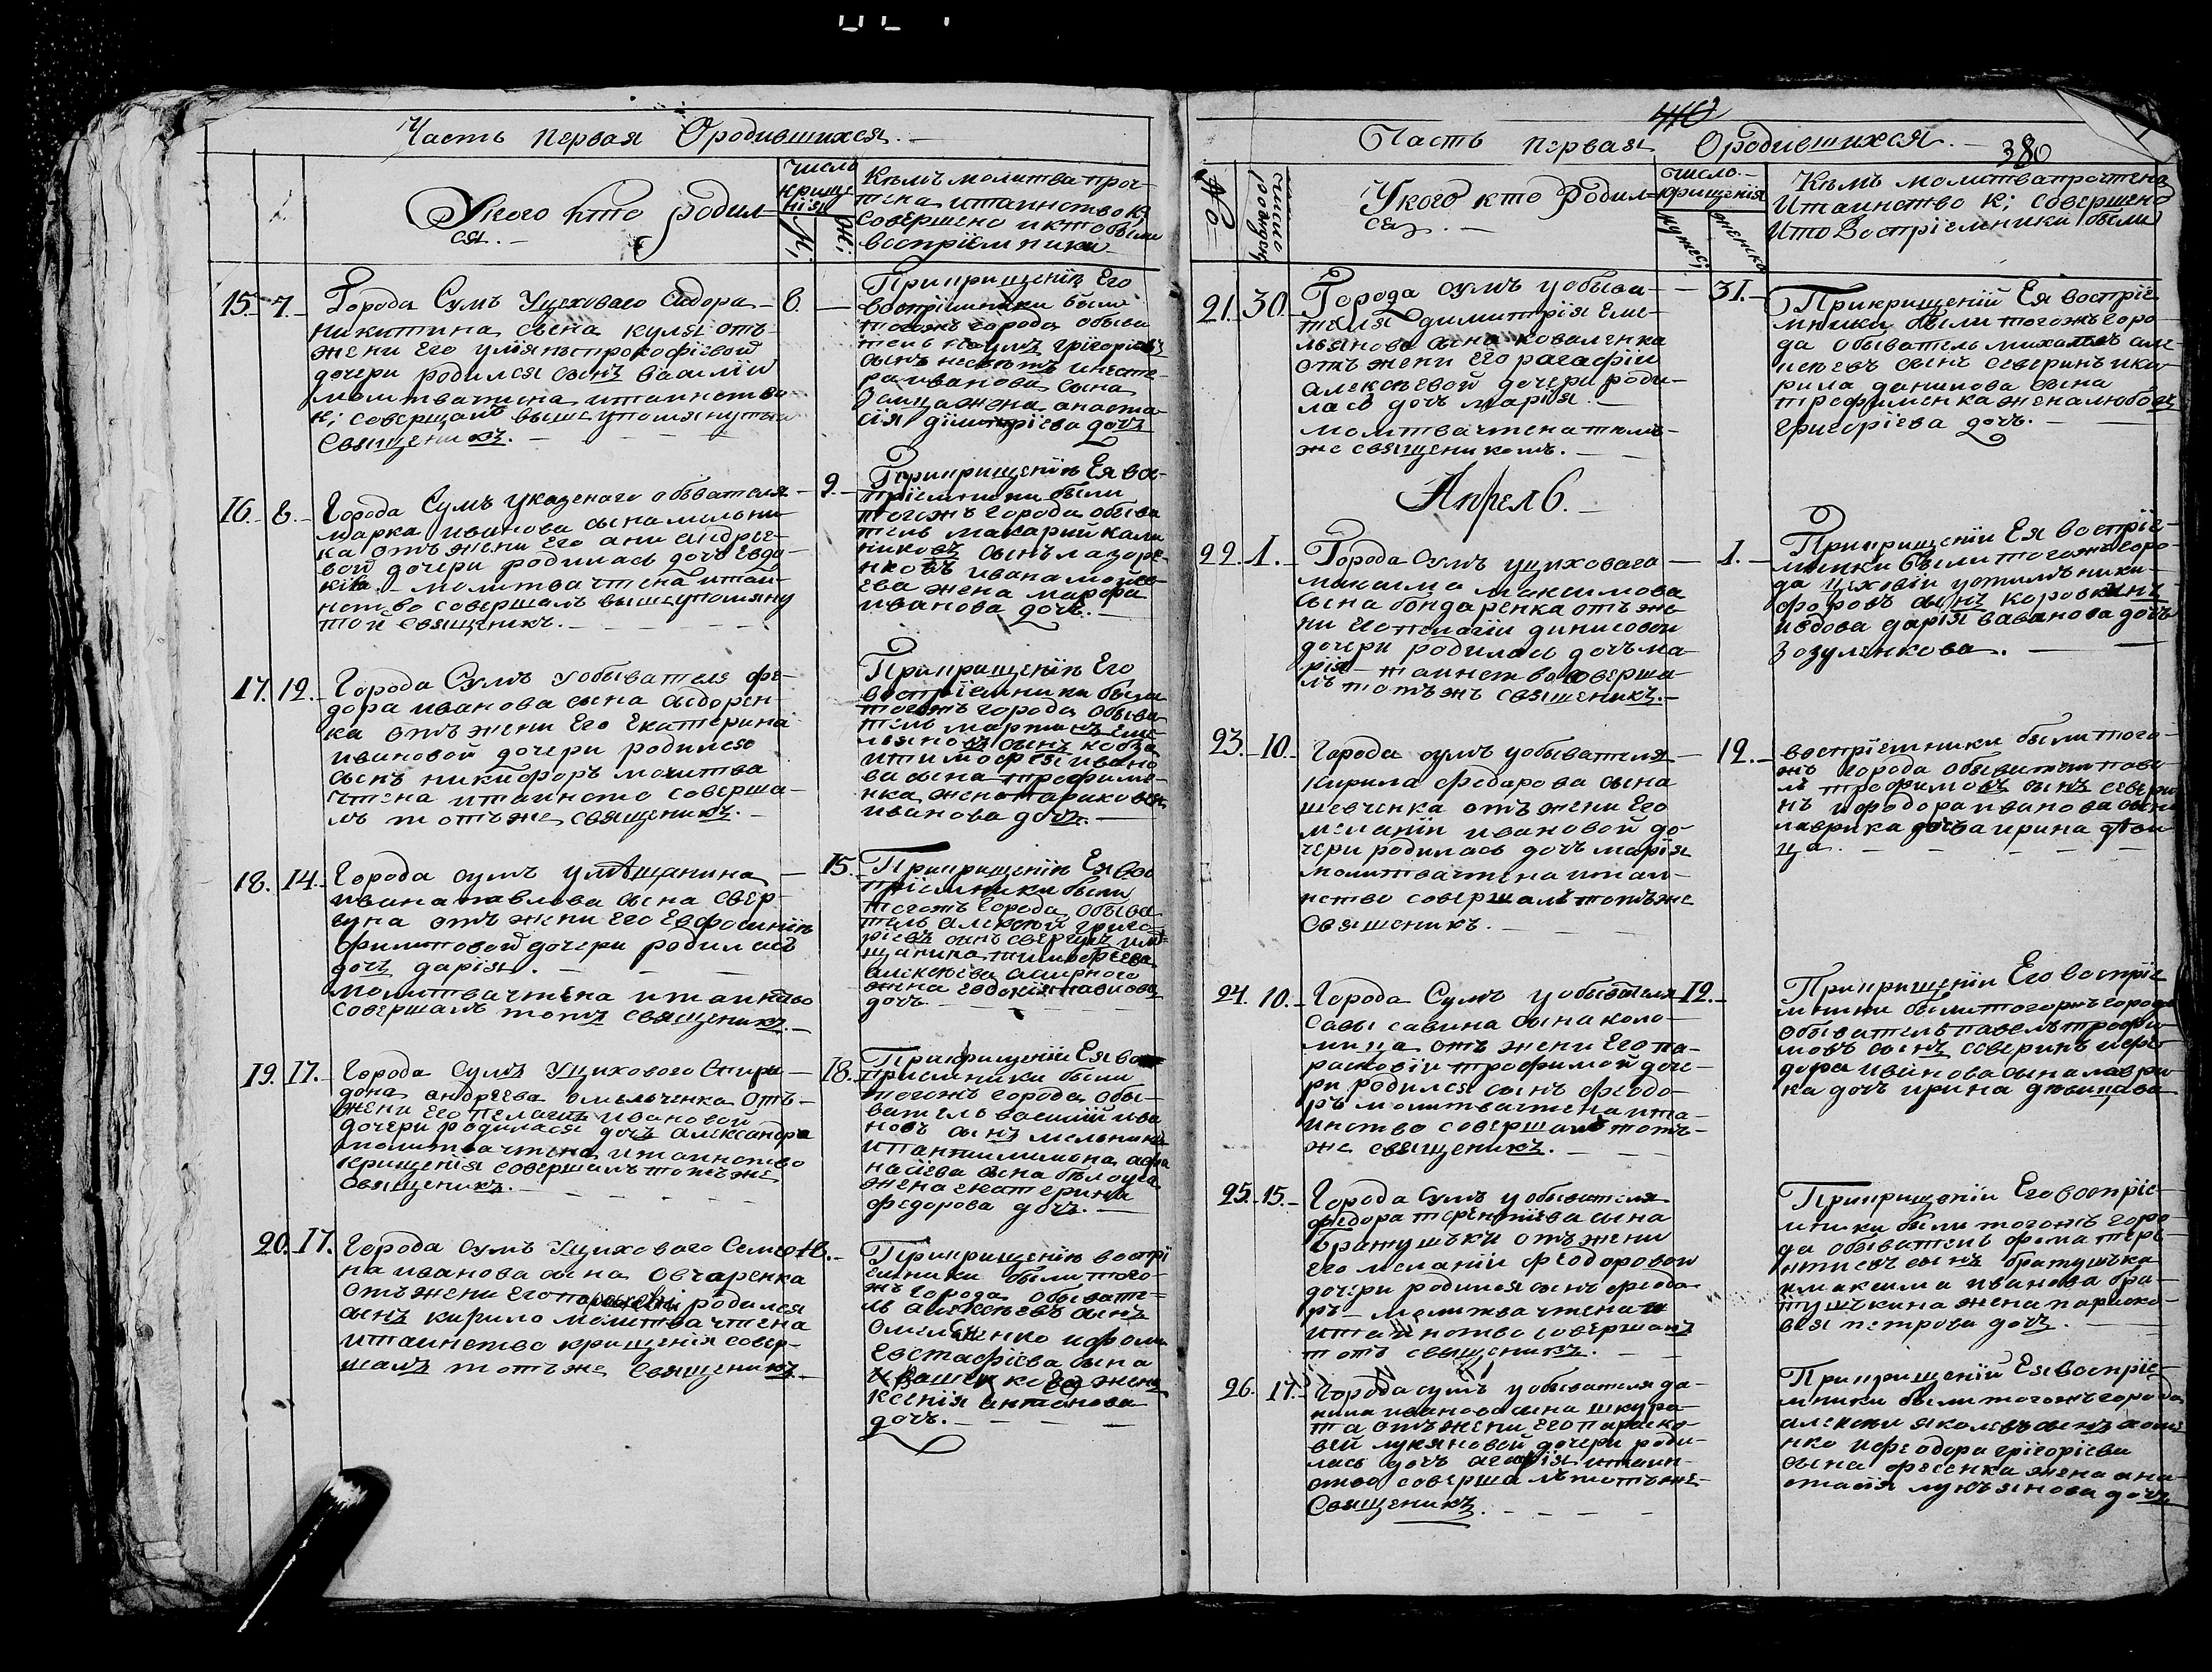 Часть первая Ородившихся. —
Укого кто родил-
ся. —
число
крище
нія
М;
Ж;
Кѣмъ молитва проч-
тена итаинство к;
совершено иктобыли
воспріемники
15. 7. Города Сумъ Уцеховаго Сидора — 8. —
никитина сына куля отъ
жени Его улiяны прокофіевой
дочери родился сынъ василій
молитва чтена итаинство
к; совершалъ вышеупомянутый
Священикъ. —
Прикрищеніи Его
воспріемники были
тогожъ города обыва
тель наумъ григоріевъ
сынъ
ра иванова сына
заица жена анаста-
сія димитріева дочъ
16. 8. Города Сумъ указеного обывателя — 9. —
марка иванова сына мельни
ка отъ жени Его ани андрее-
вой дочери родилась дочъ Евдо-
кія — молитва чтена итаи-
нство совершалъ вышеупомяну
той священикъ. —
Прикрищеніи Ея вос-
пріемники были
тогожъ города обыва
тель макарій кали
никовъ сынъ лазоре
нковъ ивана мойсе-
ева жена марфа
иванова дочъ. —
17. 12. Города Сумъ уобывателя фе-
дора иванова сына сидорен-
ка отъ жени Его Екатерина
ивановой дочери родился
сынъ никифоръ молитва
чтена итаинсто соверша-
лъ тотъ же священикъ. —
Прикрищеніи Его
воспріемники были
тогожъ города обыва
тель мартинъ Еме-
льяновъ сынъ кобза
итимофея ивано
ва сына трофиме-
нка жена париковея
иванова дочъ. —
18. 14. Города сумъ умѣщанина — 15.
ивана павлова сына свер-
гуна отъ жени Его Евфосиніи
филиповой дочери родилась
дочъ дарія. —
молитва чтена итаинство
совершалъ тотъ священикъ. —
Прикрищеніи Ея вос
пріемники были
тогожъ города обыва
тель алексѣй григо-
ріевъ сынъ свергунъ имѣ
щанина тимофеева
алексѣева смирного
жена евдокія павлова
дочъ —
19. 17. Города Сумъ Уцихового Спири — 18.
дона андреева омельченка отъ
жени Его пелагіи ивановой
дочери родилася дочъ александра
молитва чтена итаинство
крищенія совершалъ тотъ же
Священикъ. —
Прикрищеніи Ея во
пріемники были
тогожъ города обы-
ватель василій ива
новъ сынъ мельникъ
ипантилимона афа
насіева сына бѣлоуса
жена екатерина
федорова дочъ. —
20. 17. Города Сумъ Уцихового Семео 18. —
на иванова сына Овчаренка
отъ жени Его родился
сынъ кирило молитва чтена
итаинство крищенія совер-
шалъ тотъ же Священикъ —
Прикрищеніи воспрі
емники были того-
жъ города обывате-
ль алексѣевъ сынъ
Омельченко ифоми
Евстафіева сына
Ивашенкова жена
Ксенія антонова
дочъ. —
410
Часть первая Ородившихся. — 380
№о
число рожден;
Укого кто Родил-
ся. —
число. —
крищенія
мужес;
женско
Кѣмъ молитва прочтена
Итаинство к; совершено
икто Воспріемники были
21. 30. Города сумъ уобыва- — 31. —
теля димитрія Еме-
льянова сына коваленка
отъ жени Его рагафіи
алексѣевой дочери роди-
лась дочъ марія. —
молитва чтена тѣмъ-
же священикомъ. —
Прикрищеній Ея воспріе
мники были тогожъ горо
да обыватель михаилъ але
ксѣевъ сынъ северинъ ики-
рила данилова сына
трефименка жена любовъ
григоріева дочъ. —
Апрель. —
22. 1. — Города Сумъ уциховаго — 1. —
максима максимова
сына бондаренка отъ же
ни Его пелагіи динисовой
дочери родилась дочъ ма-
рія — таинство соверша-
лъ тотъ жъ священикъ. —
Прикрищеніи Ея воспріе-
мники были тогожъ горо
да циховій устимъ ники-
форовъ сынъ коровкинъ
ивдова дарія ваванова дочъ
Зозуленкова. —
23. 10. Города сумъ уобывателя — 12. —
Кирила федарова сына
шевченка отъ жени Его
меланіи ивановой до-
чери родилась дочъ марія
молитва чтена итаи-
нство совершалъ тотъ же
священикъ. —
воспріемники были того-
жъ города обыватель паве-
лъ трофимовъ сынъ севери
нъ ифедора иванова сына
лаврика дочъ ирина дѣви
ца. —
24. 10. — Города Сумъ уобывателя 12. —
Савы савина сына коло-
мица отъ жени Его па-
расковіи трофимой доче-
ри родился сынъ феодо-
ръ молитва чтена ита-
инство совершалъ тотъ-
же священикъ. —
Прикрищеніи Его воспріе
мники были тогожъ города
обыватель павелъ трофи-
мовъ сынъ северинъ ифео
дора иванова сына лаври
ка дочъ ирина дѣвица
25. 15. — Города Сумъ уобывателя
федора терентіева сына
Братушъки отъ жени
Его меланіи феодоровой
дочери родился сынъ феодо
ръ — молитва чтена
итаинство совершалъ
тотъ священикъ. —
Прикрищеніи Его воспріе
мники были тогожъ горо
да обыватель фома тере
нтиевъ сынъ братушъка
имаксима иванова бра-
тушъкина жена параско-
вея петрова дочъ. —
26. 17. — Города сумъ уобывателя да-
нила иванова сына шкура-
та отъ жени Его параско-
веи лукяновой дочери роди-
лась дочъ агафія итаин-
ство совершалъ тотъ же
Священикъ. —
Прикрищеніи Ея воспріе-
мники были тогожъ города
алексѣй яковлевъ сынъ
нко ифеодора григоріева
сына фесенка жена ана
стасія лукъянова дочъ